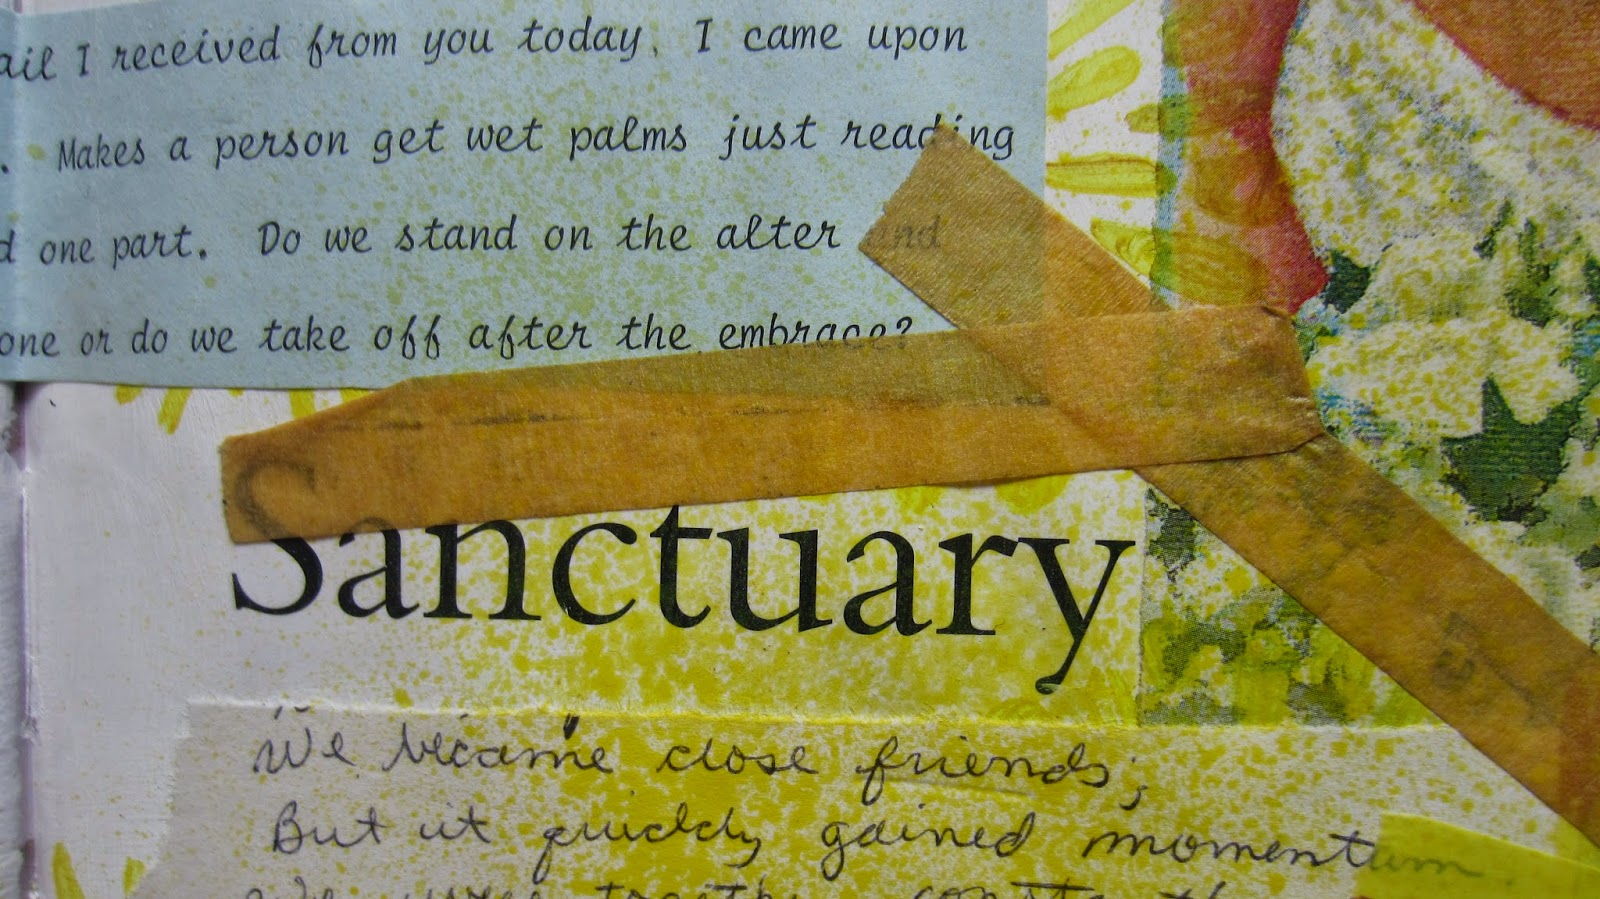 ail I received from you today. I came upon
. Makes a person get wet palms just reading
d one part. Do we stand on the alter and
one or do we take off after the embrace?
Sanctuary
We became close friends;
But it quickly gained momentum
We were together